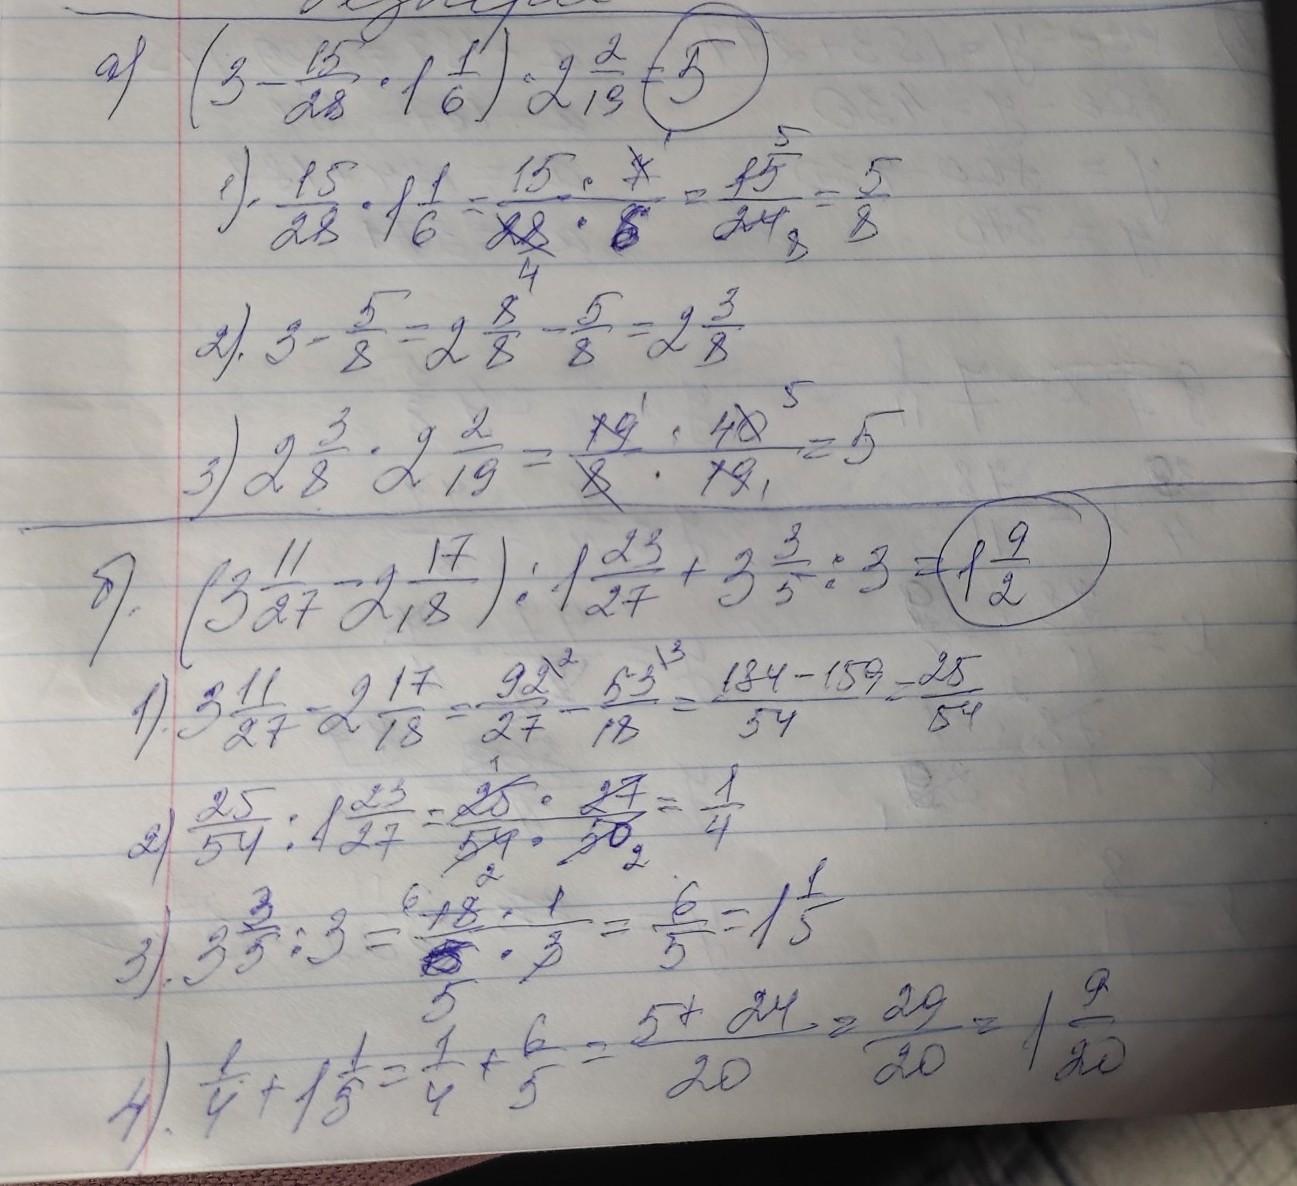 а) (3 - 15/28 · 1 1/6) · 2 2/19 = 5
1). 15/28 · 1 1/6 = 15 · 7/28 · 6 = 15/24 = 5/8
2). 3 - 5/8 = 2 8/8 - 5/8 = 2 3/8
3) 2 3/8 · 2 2/19 = 19 · 40/8 · 19 = 5
б). (3 11/27 - 2 17/18) : 1 23/27 + 3 3/5 : 3 = 1 9/2
1). 3 11/27 - 2 17/18 = 92/27 - 53/18 = 184 - 159/54 = 25/54
2) 25/54 : 1 23/27 = 25 · 27/54 · 50 = 1/4
3). 3 3/5 : 3 = 18 · 1/5 · 3 = 6/5 = 1 1/5
4). 1/4 + 1 1/5 = 1/4 + 6/5 = 5 + 24/20 = 29/20 = 1 9/20